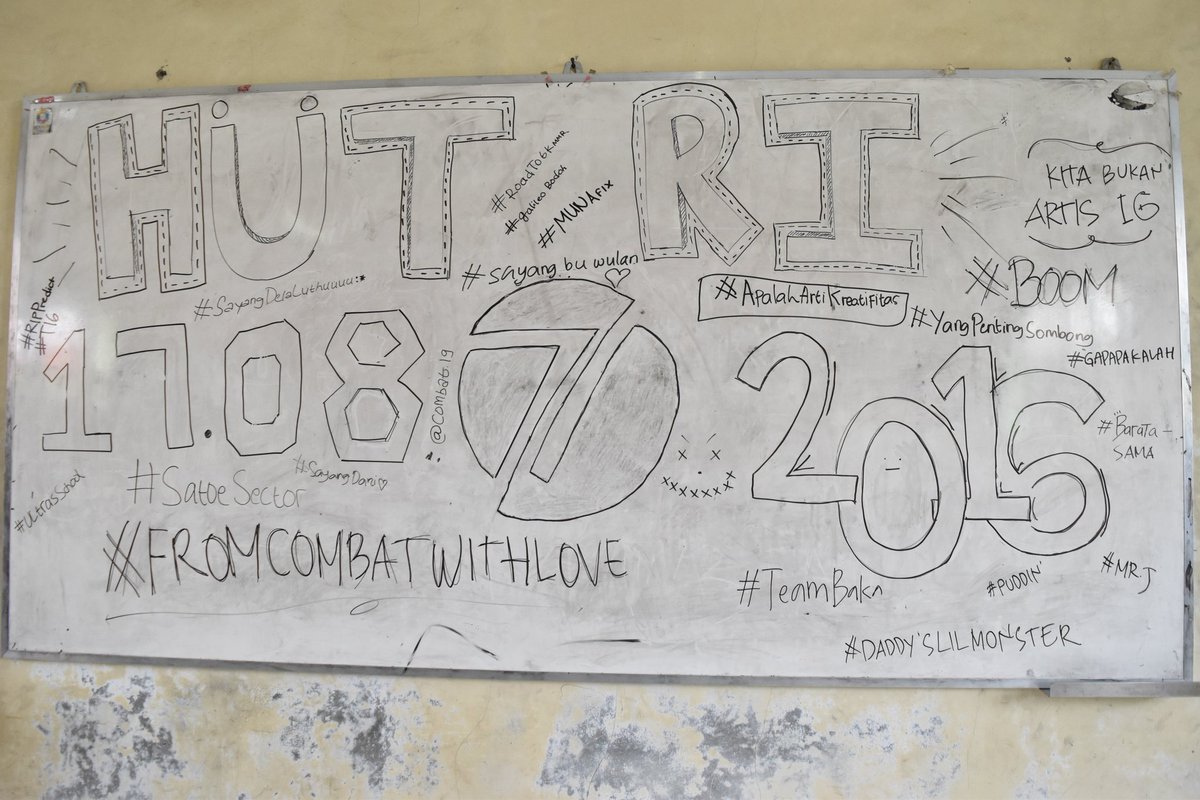 HUT RI
#RoadTo6KMMR
#Galileo Bodoh
#MUNAFIX
KITA BUKAN
ARTIS IG
#sayang bu wulan
#BOOM
#SayangDelaLuthuuuu:*
#ApalahArtiKreatifitas
#YangPentingSombong
#GAPAPAKALAH
#T16
17.08.
71
2016
@combat.19
#Barata-
SAMA
#UltrasSchool
#SatoeSector
#SayangDani♡
#FROMCOMBATWITHLOVE
#TeamBaka
#PUDDIN'
#MR.J
#DADDY'SLILMONSTER